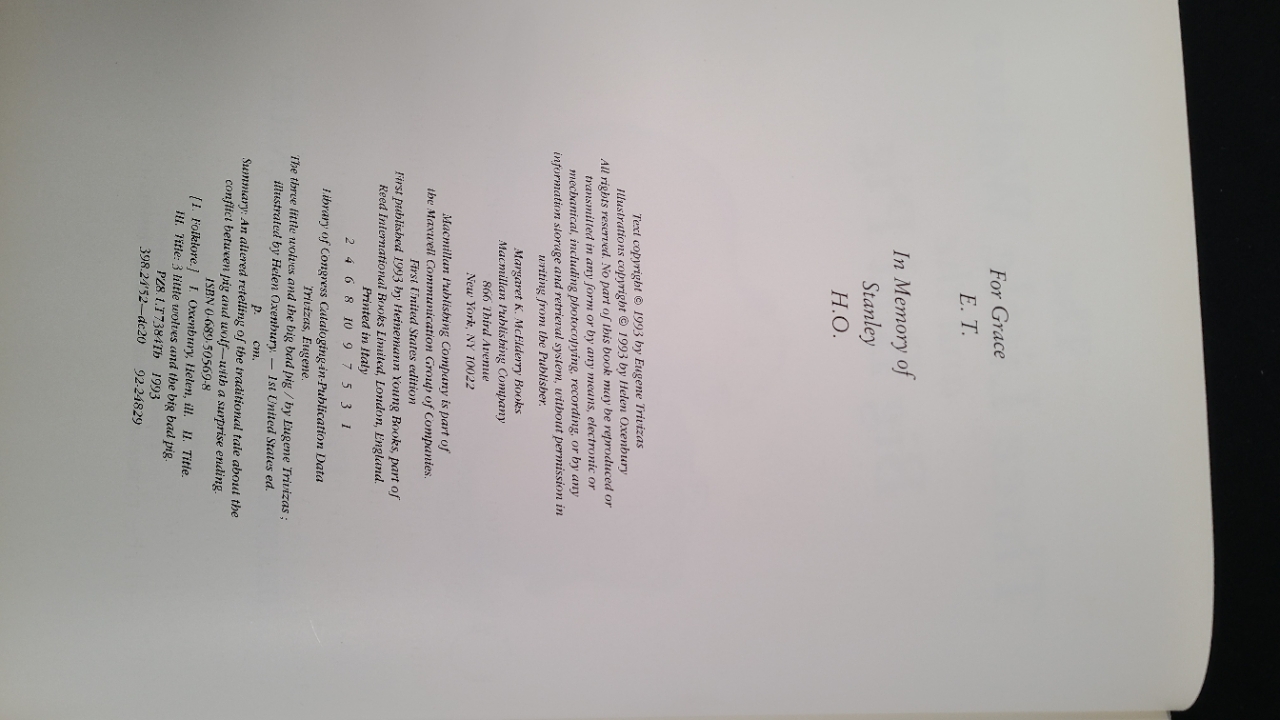 For Grace
E. T.
In Memory of
Stanley
H.O.
Text copyright © 1993 by Eugene Trivizas
Illustrations copyright © 1993 by Helen Oxenbury
All rights reserved. No part of this book may be reproduced or
transmitted in any form or by any means, electronic or
mechanical, including photocopying, recording, or by any
information storage and retrieval system, without permission in
writing from the Publisher.
Margaret K. McElderry Books
Macmillan Publishing Company
866 Third Avenue
New York, NY 10022
Macmillan Publishing Company is part of
the Maxwell Communication Group of Companies.
First United States edition
First published 1993 by Heinemann Young Books, part of
Reed International Books Limited, London, England.
Printed in Italy
2 4 6 8 10 9 7 5 3 1
Library of Congress Cataloging-in-Publication Data
Trivizas, Eugene.
The three little wolves and the big bad pig / by Eugene Trivizas ;
illustrated by Helen Oxenbury. — 1st United States ed.
p. cm.
Summary: An altered retelling of the traditional tale about the
conflict between pig and wolf—with a surprise ending.
ISBN 0-689-50569-8
[1. Folklore.] I. Oxenbury, Helen, ill. II. Title.
III. Title: 3 little wolves and the big bad pig.
PZ8.1.T7384Th 1993
398.24'52—dc20 92-24829